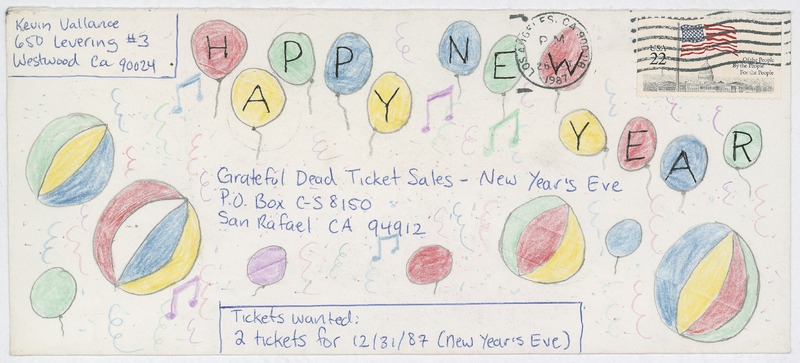 Kevin Vallance
650 Levering #3
Westwood Ca 90024
HAPPY NEW
YEAR
LOS ANGELES, CA
PM
1987
USA
22
Of the People
By the People
For the People
Grateful Dead Ticket Sales - New Year's Eve
P.O. Box C-S 8150
San Rafael CA 94912
Tickets wanted:
2 tickets for 12/31/87 (New Year's Eve)